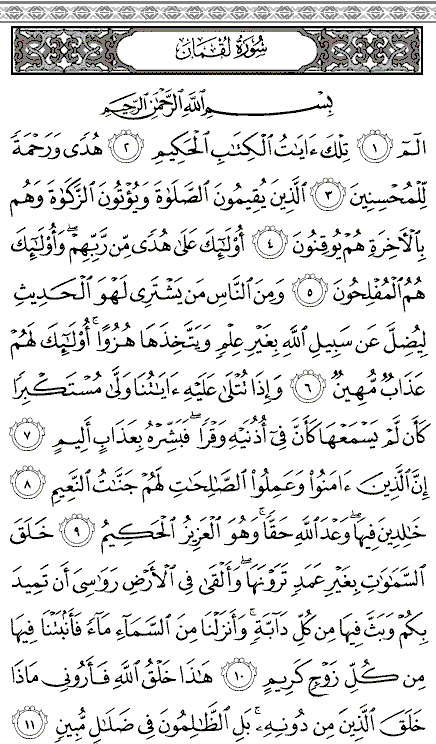 سُورَةُ لُقْمَان
بِسْمِ اللَّهِ الرَّحْمَٰنِ الرَّحِيمِ
الٓمٓ ١ تِلْكَ ءَايَٰتُ الْكِتَٰبِ الْحَكِيمِ ٢ هُدًى وَرَحْمَةً
لِّلْمُحْسِنِينَ ٣ الَّذِينَ يُقِيمُونَ الصَّلَوٰةَ وَيُؤْتُونَ الزَّكَوٰةَ وَهُم
بِالْءَاخِرَةِ هُمْ يُوقِنُونَ ٤ أُوْلَٰٓئِكَ عَلَىٰ هُدًى مِّن رَّبِّهِمْ ۖ وَأُوْلَٰٓئِكَ
هُمُ الْمُفْلِحُونَ ٥ وَمِنَ النَّاسِ مَن يَشْتَرِى لَهْوَ الْحَدِيثِ
لِيُضِلَّ عَن سَبِيلِ اللَّهِ بِغَيْرِ عِلْمٍ وَيَتَّخِذَهَا هُزُوًا ۚ أُوْلَٰٓئِكَ لَهُمْ
عَذَابٌ مُّهِينٌ ٦ وَإِذَا تُتْلَىٰ عَلَيْهِ ءَايَٰتُنَا وَلَّىٰ مُسْتَكْبِرًا
كَأَن لَّمْ يَسْمَعْهَا كَأَنَّ فِىٓ أُذُنَيْهِ وَقْرًا ۖ فَبَشِّرْهُ بِعَذَابٍ أَلِيمٍ ٧
إِنَّ الَّذِينَ ءَامَنُوا۟ وَعَمِلُوا۟ الصَّٰلِحَٰتِ لَهُمْ جَنَّٰتُ النَّعِيمِ ٨
خَٰلِدِينَ فِيهَا ۖ وَعْدَ اللَّهِ حَقًّا ۚ وَهُوَ الْعَزِيزُ الْحَكِيمُ ٩ خَلَقَ
السَّمَٰوَٰتِ بِغَيْرِ عَمَدٍ تَرَوْنَهَا ۖ وَأَلْقَىٰ فِى الْأَرْضِ رَوَٰسِىَ أَن تَمِيدَ
بِكُمْ وَبَثَّ فِيهَا مِن كُلِّ دَآبَّةٍ ۚ وَأَنزَلْنَا مِنَ السَّمَآءِ مَآءً فَأَنۢبَتْنَا فِيهَا
مِن كُلِّ زَوْجٍ كَرِيمٍ ١٠ هَٰذَا خَلْقُ اللَّهِ فَأَرُونِى مَاذَا
خَلَقَ الَّذِينَ مِن دُونِهِۦ ۚ بَلِ الظَّٰلِمُونَ فِى ضَلَٰلٍ مُّبِينٍ ١١